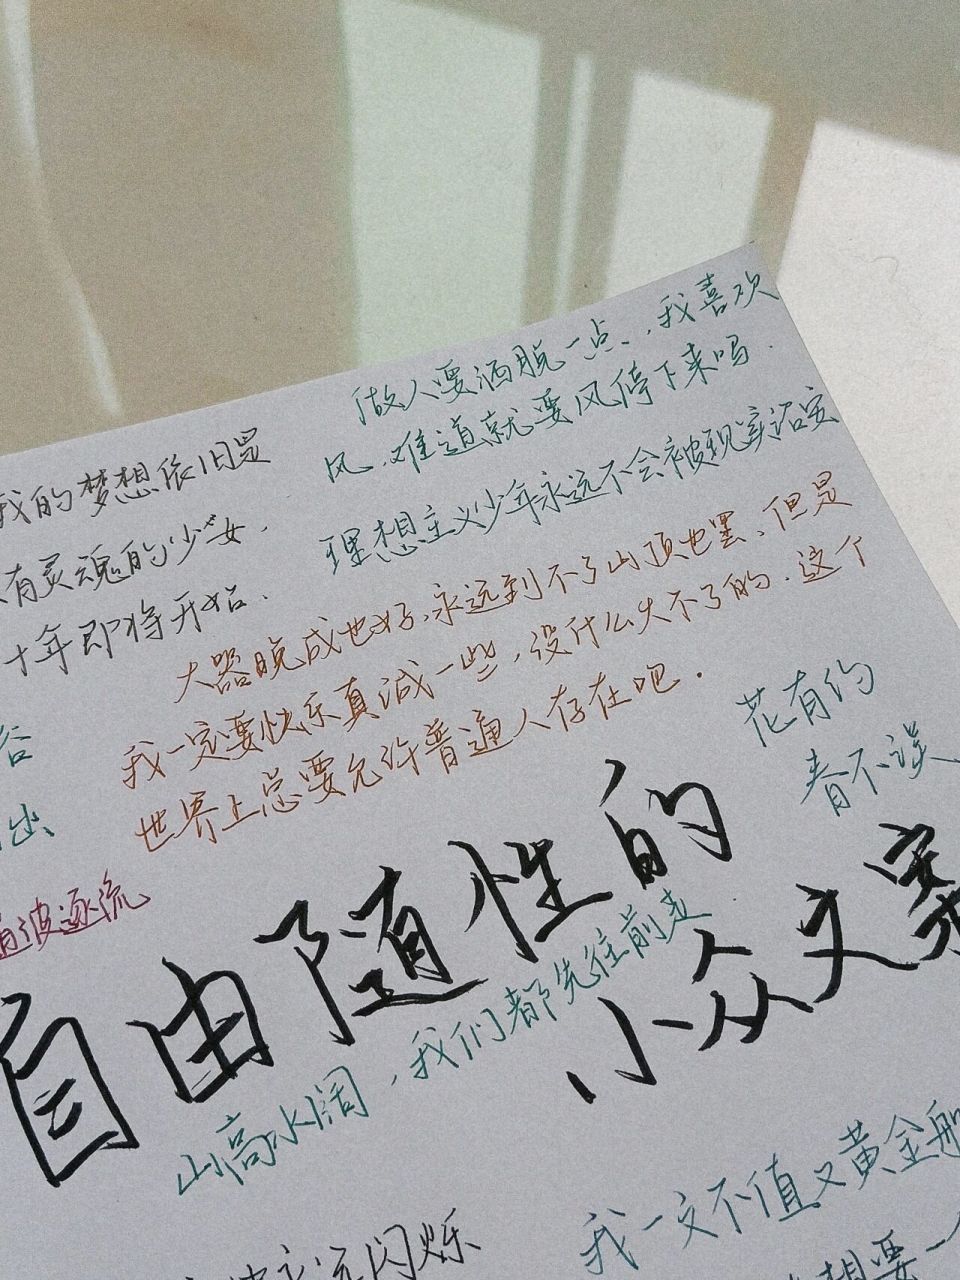 做人要洒脱一点，我喜欢
风，难道就要风停下来吗．
理想主义少年永远不会被现实招安
我的梦想依旧是
有灵魂的少女．
十年即将开始．
大器晚成也好，永远到不了山顶也罢、但是
我一定要快乐真诚一些，没什么大不了的．这个
世界上总要允许普通人存在吧．
花有约
春不误
出
波逐流
自由随性的
小众文案
山高水阔，我们都先往前走
我一文不值又黄金般
闪烁
想要一个